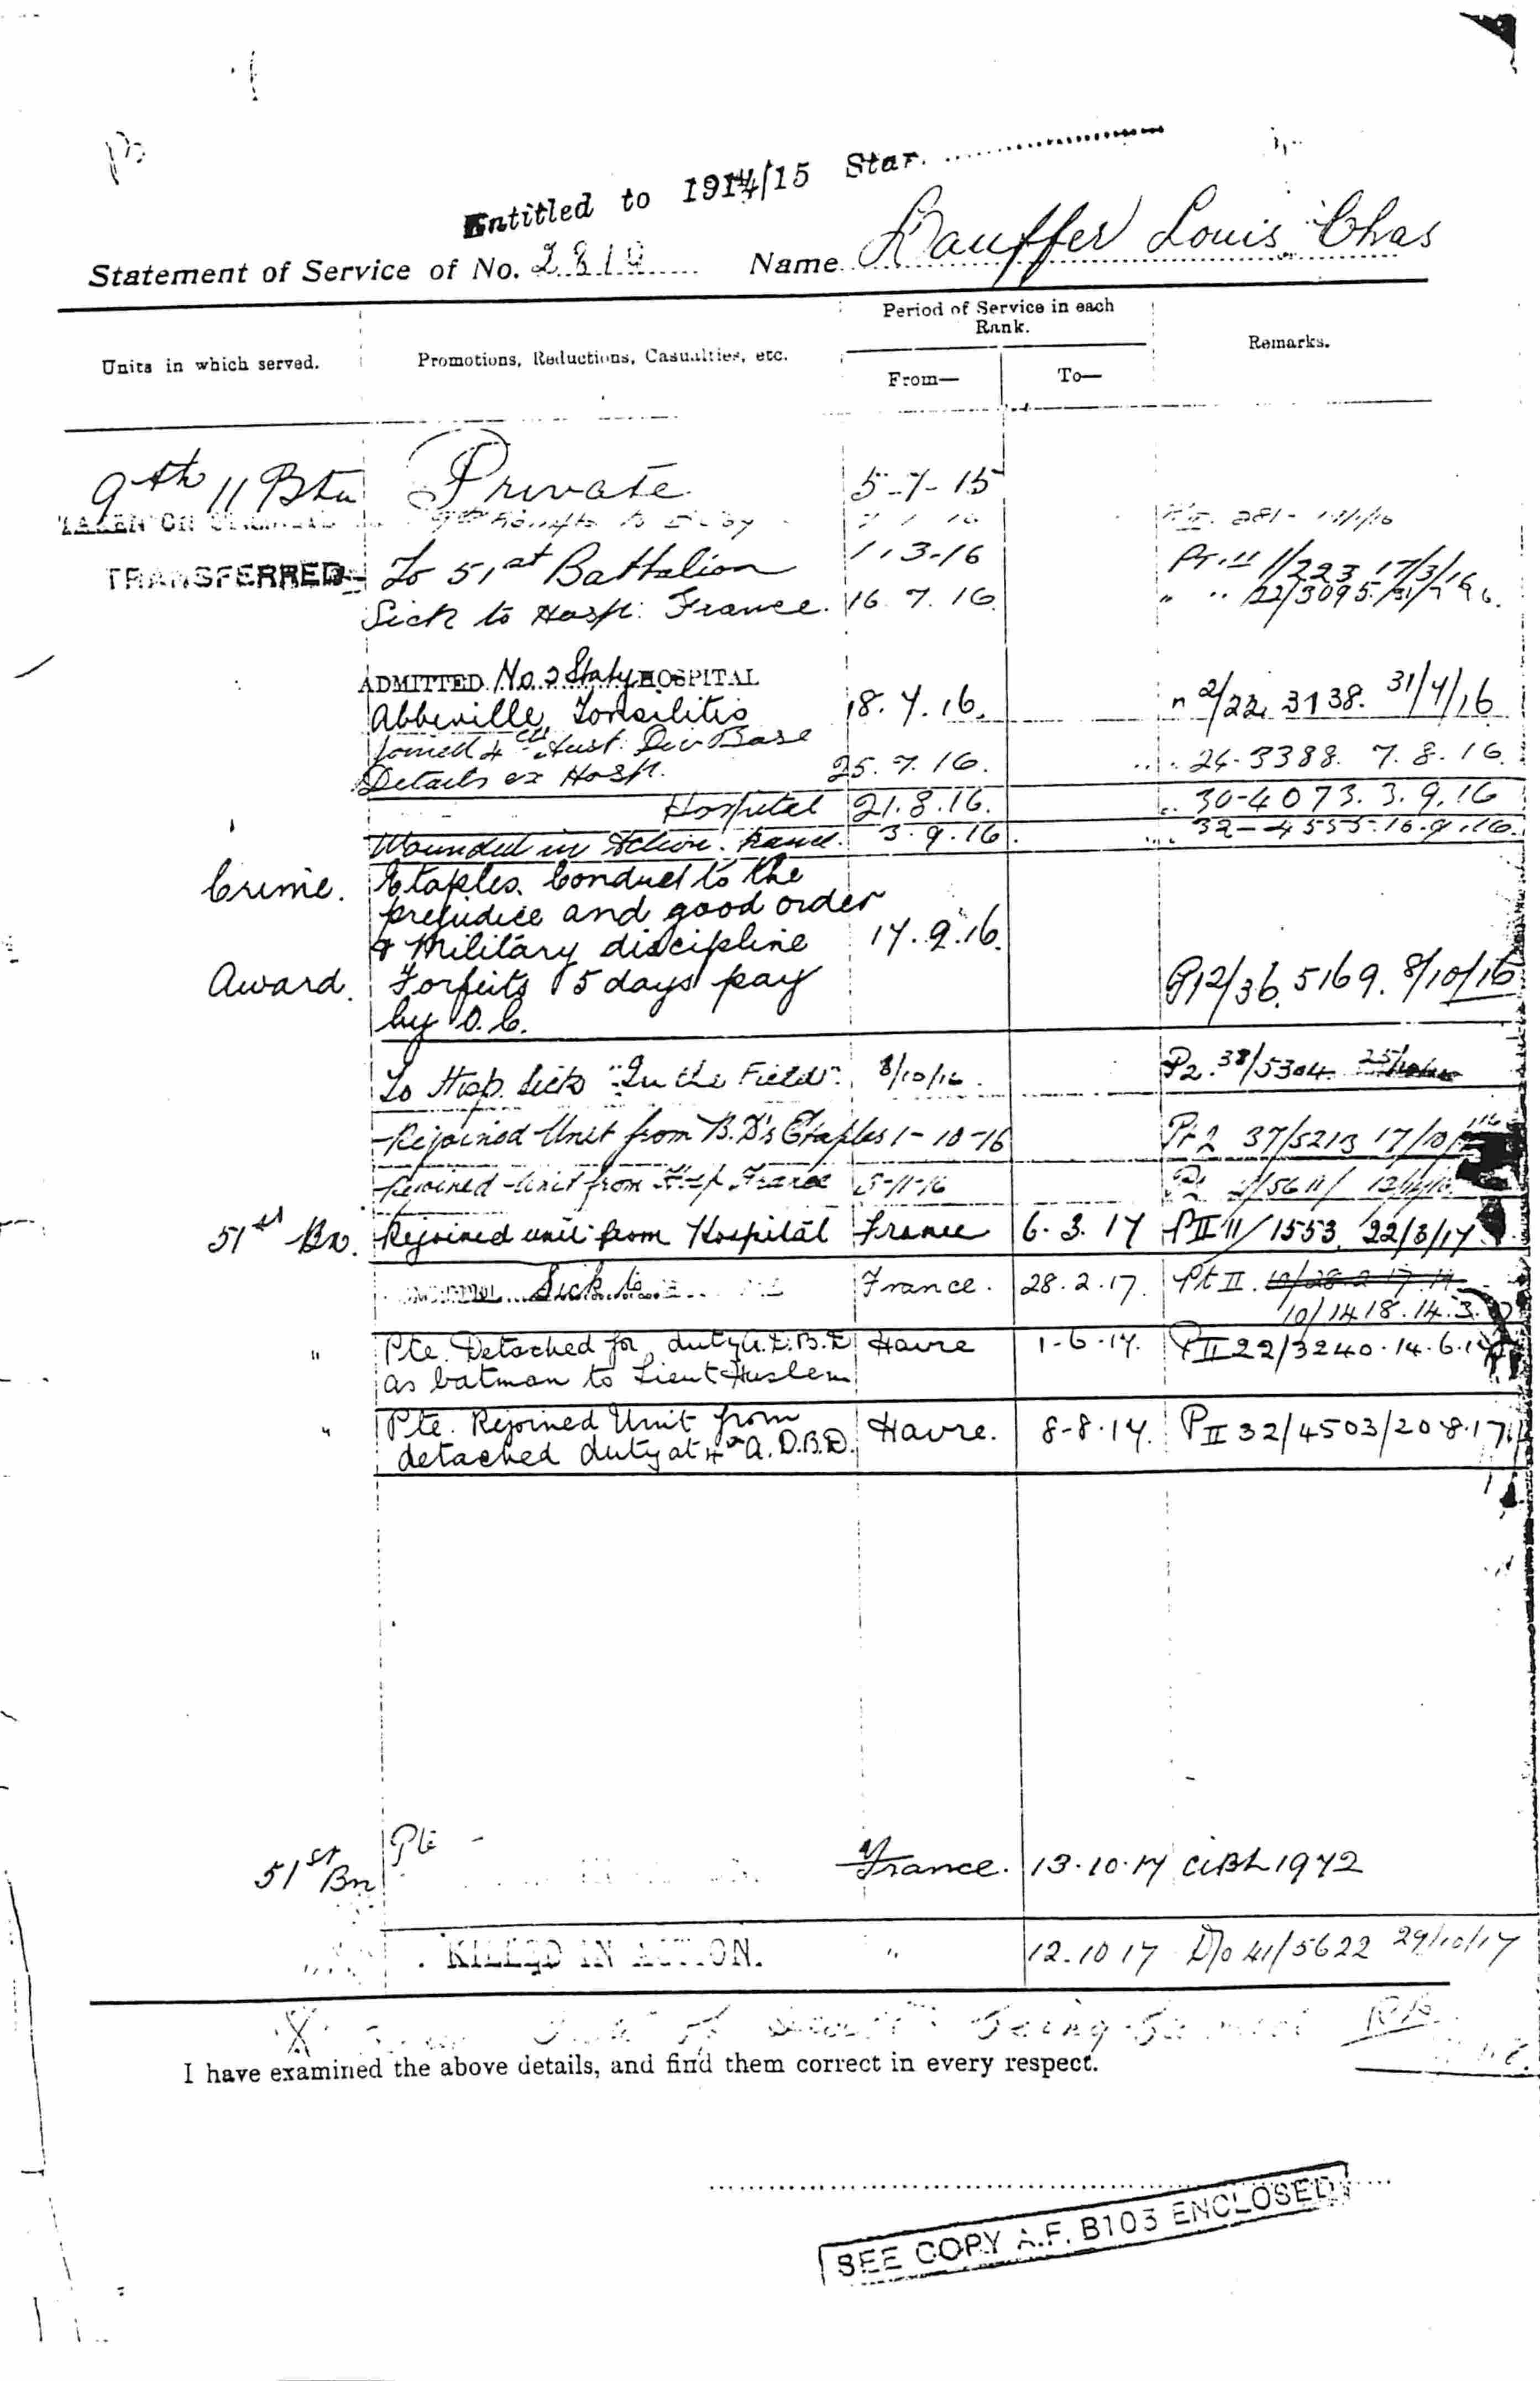 Entitled to 1914/15 Star.
Statement of Service of No. 2819 Name Lauffer Louis Chas
Units in which served. Promotions, Reductions, Casualties, etc. Period of Service in each Rank. Remarks.
From— To—
9th 11 Btn Private 5-7-15
TAKEN ON
TRANSFERRED To 51st Battalion 1.3.16 Pt. II 1/223 17/3/16
Sick to Hosp: France. 16.7.16 " " 22/3095
ADMITTED No. 2 Staty HOSPITAL
Abbeville Tonsilitis 18.7.16. " 2/22. 3138. 31/7/16
Joined 4th Aust: Div Base
Details ex Hosp. 25.7.16. 24-3388. 7.8.16.
Hospital 21.8.16. 30-4073. 3.9.16
Wounded in Action. France. 3.9.16. 32-4535. 16.9.16
Crime. Etaples. Conduct to the
prejudice and good order
& Military discipline 17.9.16.
Award. Forfeits 5 days pay P12/36. 5169. 8/10/16
by O.C.
To Hosp. Sick "In the Field". 8/10/16. P2. 38/5304.
Rejoined Unit from B.D's Etaples 1-10-16 Pt 2 37/5213 17/10/16
Rejoined Unit from Hosp France 5-11-16
51st Bn. Rejoined unit from Hospital France 6.3.17 PII 11/1553. 22/3/17
Sick to France. 28.2.17. Pt II. 10/28.2.17.14
10/1418.14.3.
" Pte. Detached for duty A.D.B.D Havre 1-6-17. PII 22/3240.14.6.17
as batman to Lieut Huslem
" Pte. Rejoined Unit from
detached duty at 4th A.D.B.D. Havre. 8-8-17. PII 32/4503/20.8.17
51st Bn Pte France. 13.10.17 CiBL 1972
KILLED IN ACTION. " 12.10.17 D/o 41/5622 29/10/17
I have examined the above details, and find them correct in every respect.
SEE COPY A.F. B103 ENCLOSED